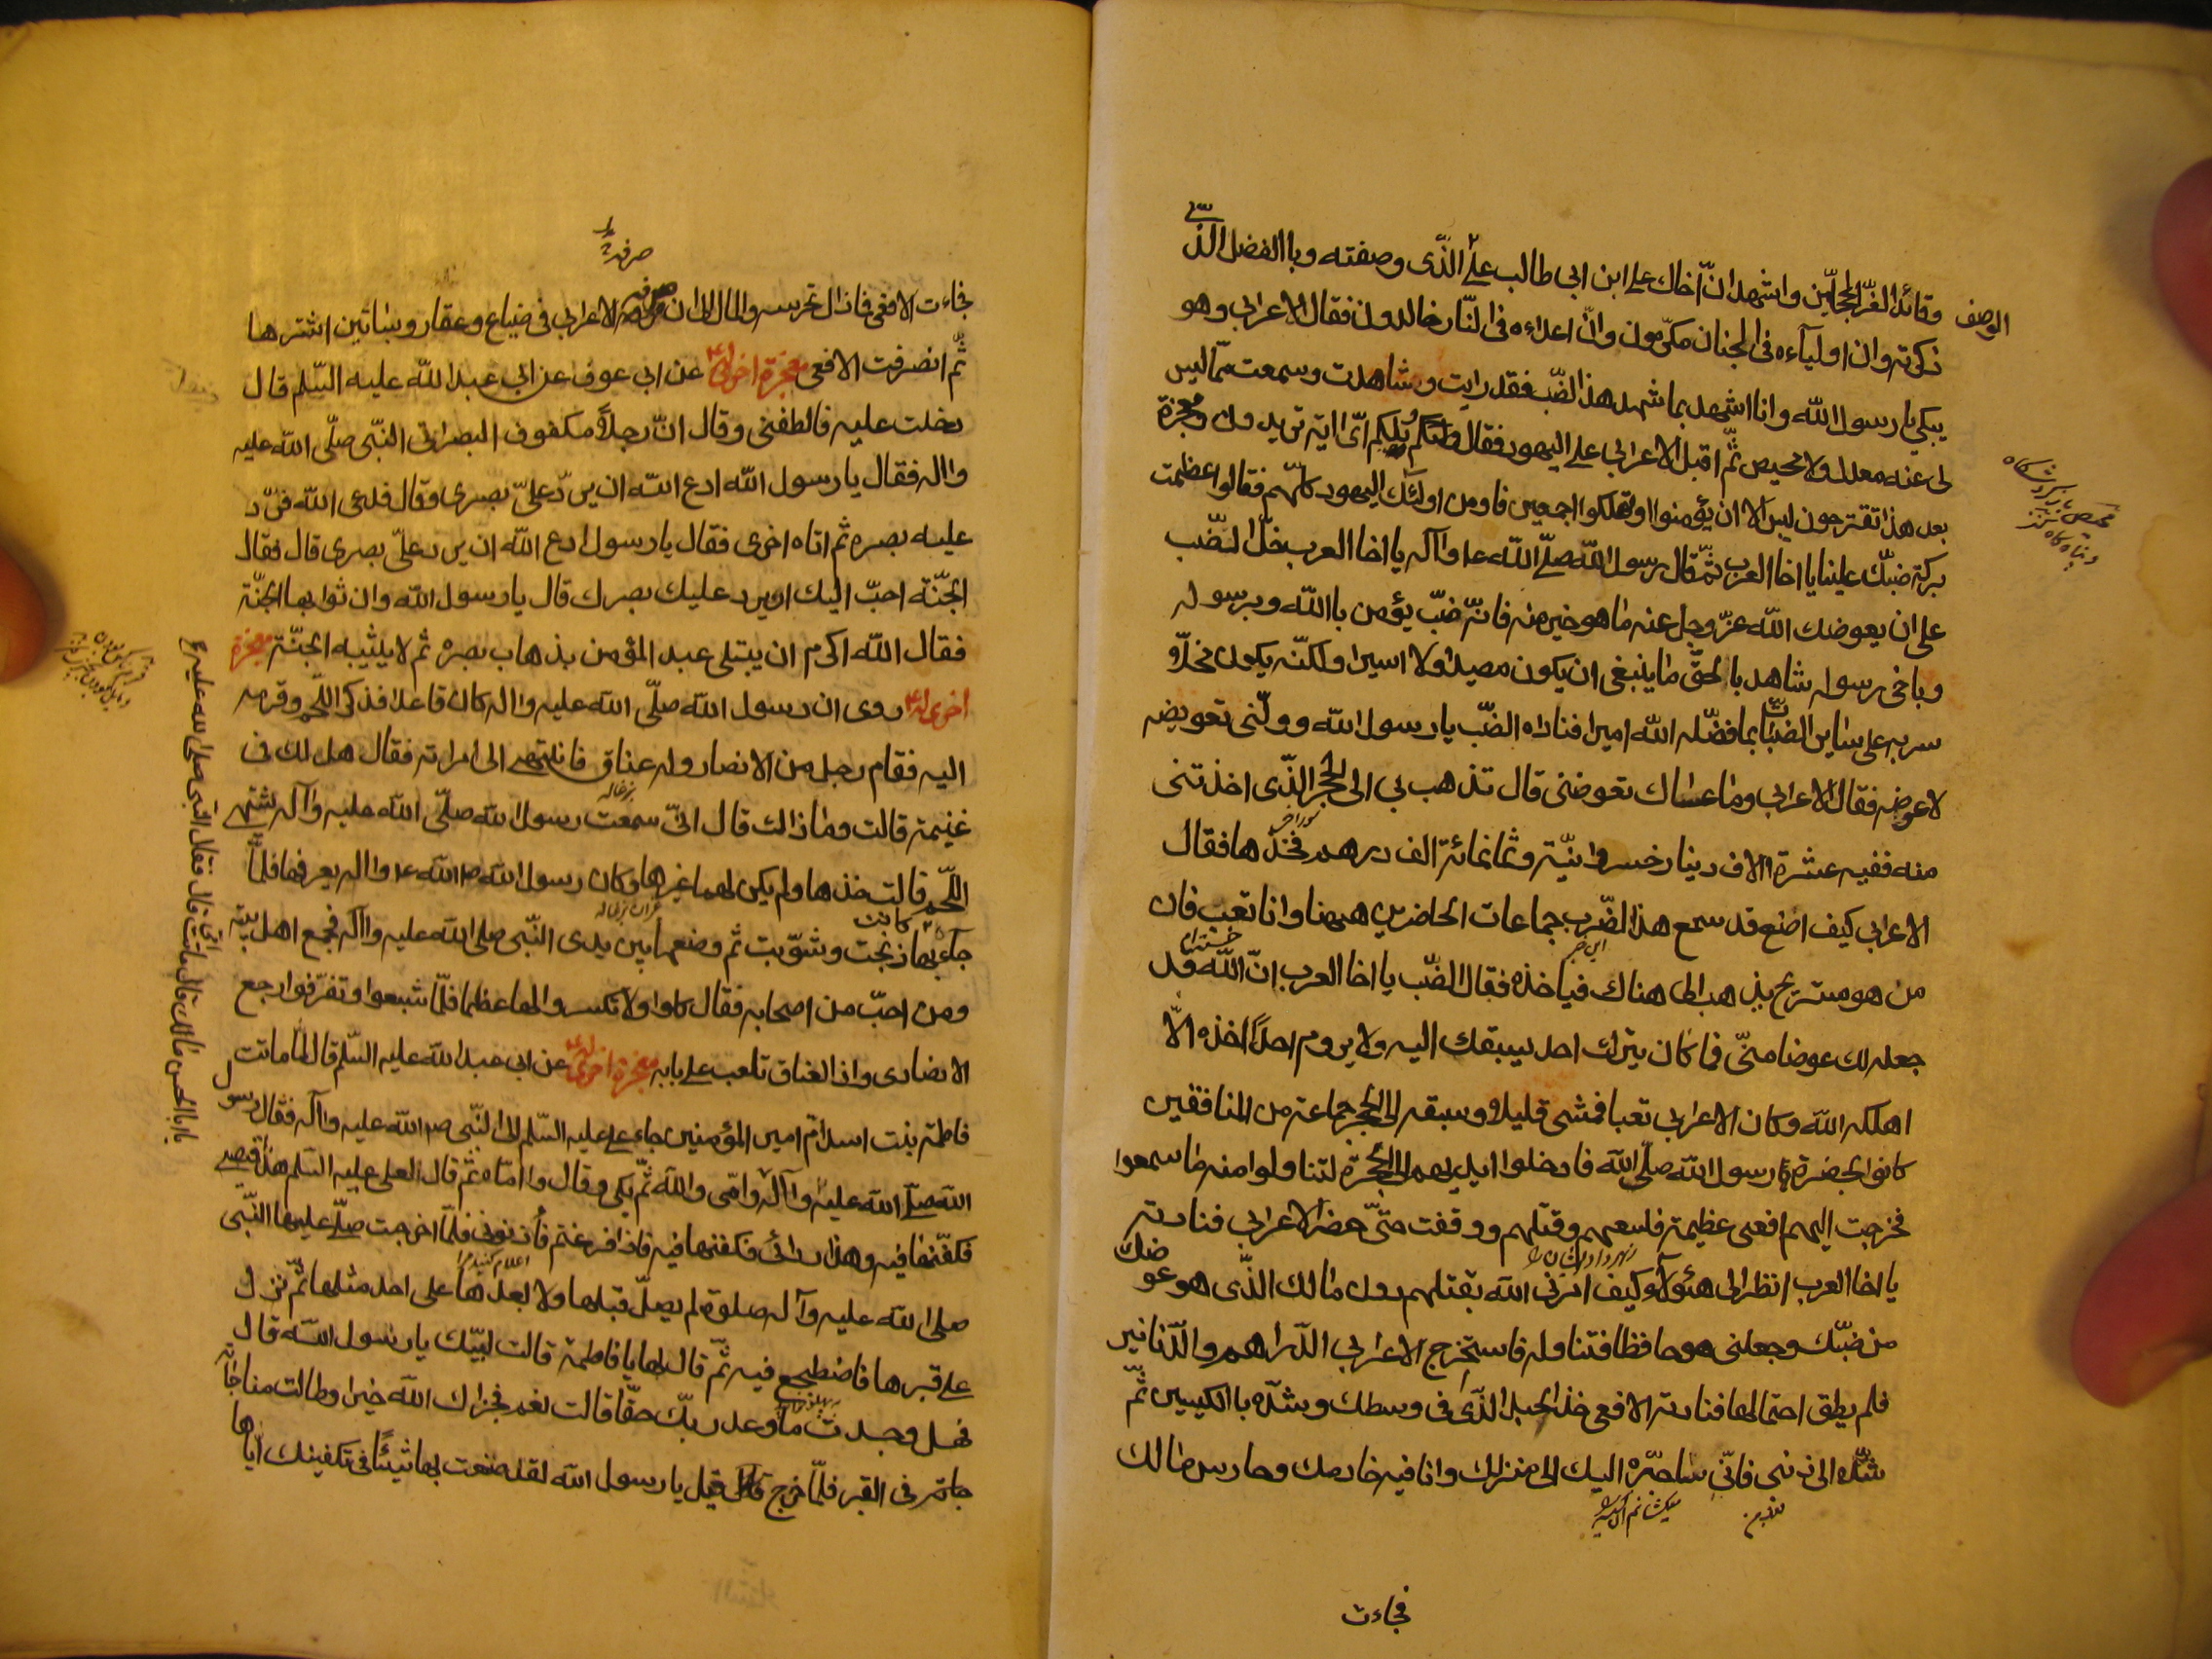 وقائد الغرّ المحجلّين واشهد انّ اخاك علي ابن ابي طالب علی الذّی وصفته وبا الفضل الذّي
الوصف
ذكرته وان اوليآءه فی الجنان مكرّمون وانّ اعداءه فی النّار خالدون فقال الاعرابی وهو
يبكي يا رسول اللّه وانا اشهد بما شهد هذا الضّب فقد رايت وشاهدت وسمعت ممّا ليس
لی عنه معدل ولا محيص ثمّ اقبل الاعرابي علی اليهود فقال ويلكم ایّ اية تريدون ومعجزة
بعد هذا تقترحون ليس الا ان يؤمنوا او تهلكوا اجمعين فاومن اولئك اليهود كلّهم فقالوا عظمت
بركة ضبّك علينا يا اخا العرب ثمّ قال رسول اللّه صلّی اللّه عل واآله يا اخا العرب خلّ الضّب
علی ان يعوضك اللّه عزّ وجل عنه ما هو خير منه فانّه ضبّ يؤمن با اللّه وبرسوله
وباخی رسوله شاهد بالحقّ ما ينبغی ان يكون مصيدا ولا اسيرا ولكنّه يكون مخلّو
سربه علی ساير الضباب بما فضّله اللّه اميرا فناداه الضّب يا رسول اللّه وولّنی تعويضه
لاعوضه فقال الاعرابی وما عساك تعوضنی قال تذهب بی الی الحجر الذّی اخذتنی
منه ففيه عشرة االاف دينار خسروانيّة وثمانمائة الف درهم فخذها فقال
الاعرابي كيف اصنع قد سمع هذا الضّب جماعات الحاضرين ههنا وانا تعب فان
من هو مستريح يذهب الی هناك فيأخذه فقال الضّب يا اخا العرب انّ اللّه قد
جعله لك عوضا منّی فما كان يترك احد يسبقك اليه ولا يروم احدا اخذه الاّ
اهلكه اللّه وكان الاعرابی تعبا فمشی قليلا وسبقه الی الحجر جماعة من المنافقين
كانوا بحضرة رسول اللّه صلّی اللّه فادخلوا ايديهم الی الحجرة لتناولوا منه ما سمعوا
فخرجت اليهم افعی عظيمة فلسعهم وقتلهم ووقفت حتّی حضر الاعرابی فنادته
يا اخا العرب انظر الی هئولآء كيف امرنی اللّه بقتلهم دون مالك الذّی هو عوضك
من ضبّك وجعلنی هو حافظا فتناوله فاستخرج الاعرابي الدّراهم والدّنانير
فلم يطق احتمالها فنادته الافعی خذ الحبل الذّی فی وسطك وشدّه با الكيسين ثمّ
شدّه الی ذنبی فانّی ساجرّه اليك الی منزلك وانا فيه خادمك وحارس مالك
فجاءت
صرفه
فجاءت الافعی فما زال تحرسه والمال الی ان فرقه الاعرابی فی ضياع وعقار وبساتين اشترها
ثّم انصرفت الافعی معجزة اخری عن ابی عوف عن ابی عبد اللّه عليه السّلم قال
دخلت عليه فالطفنی وقال انّ رجلاً مكفوف البصر اتی النّبی صلّی اللّه عليه
واله فقال يا رسول اللّه ادع اللّه ان يردّ علیّ بصری وقال فدعی اللّه فردّ
عليه بصره ثم اتاه اخری فقال يا رسول ادع اللّه ان يرد علیّ بصری قال فقال
الجنّة احبّ اليك او يرد عليك بصرك قال يا رسول اللّه وان ثوابها الجنّة
فقال اللّه اكرم ان يبتلی عبد المؤمن بذهاب بصره ثم لا يثيبه الجنّة معجزة
اخری روی ان رسول اللّه صلّی اللّه عليه واله كان قاعدا فذكر اللّحم وقرمه
اليه فقام رجل من الانصار وله عناق فانتهی الی امراته فقال هل لك فی
غنيمة قالت وما ذالك قال انّی سمعت رسول اللّه صلّی اللّه عليه وآله يشتهی
اللّحم قالت خذها ولم يكن لهما غيرها وكان رسول اللّه ص اللّه عل واله يعرفها فلمّا
جآء بها ذبحت وشوّيت ثم وضعها بين يدی النّبی صلی اللّه عليه واآله فجمع اهل بيته
ومن احبّ من اصحابه فقال كلوا ولا تكسروا لها عظما فلمّا شبعوا وتفرّقوا رجع
الانصاری واذ العناق تلعب علی بابه معجزة اخری عن ابی عبد اللّه عليه السّلم قال لمّا ماتت
فاطمة بنت اسد امّ امير المؤمنين جاء علی عليه السّلم الی النّبی ص اللّه عليه واآله فقال رسول
اللّه صلّی اللّه عليه واآله وامّی واللّه ثّم بكی وقال وا امّاه ثم قال العلی عليه السّلم هذا قميصی
فكفّنها فيه وهذا ردائی فكفنها فيه فاذا فرغتم فأذنونی فلمّا اخرجت صلّی عليها النّبی
صلی اللّه عليه وآله صلوة لم يصلّ قبلها ولا بعدها علی احد مثلها ثّم نزل
علی قبرها فاضطجع فيه ثّم قال لها يا فاطمة قالت لبيّك يا رسول اللّه قال
فهل وجدت ما وعد ربّك حقّا قالت نعم فجزاك اللّه خيرا وطالت مناجاته
جاته فی القبر فلمّا خرج قيل يا رسول اللّه لقد صنعت بها شيئًا فی تكفينك ايّاها
يا ابا الحسن مالك قال ماتت امّی قال فقال النّبی صلی اللّه عليه